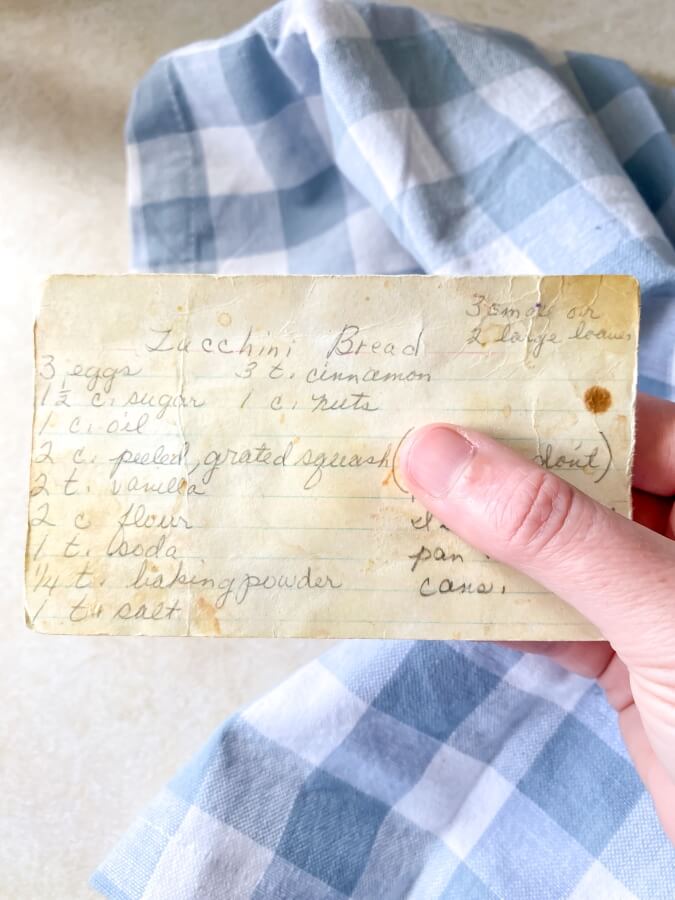 3 small or
2 large loaves
Zucchini Bread
3 eggs 3 t. cinnamon
1 1/2 c. sugar 1 c. nuts
1 c. oil
2 c. peeled, grated squash ( don't)
2 t. vanilla
2 c flour
1 t. soda
pan
1/4 t. baking powder
cans.
1 t. salt